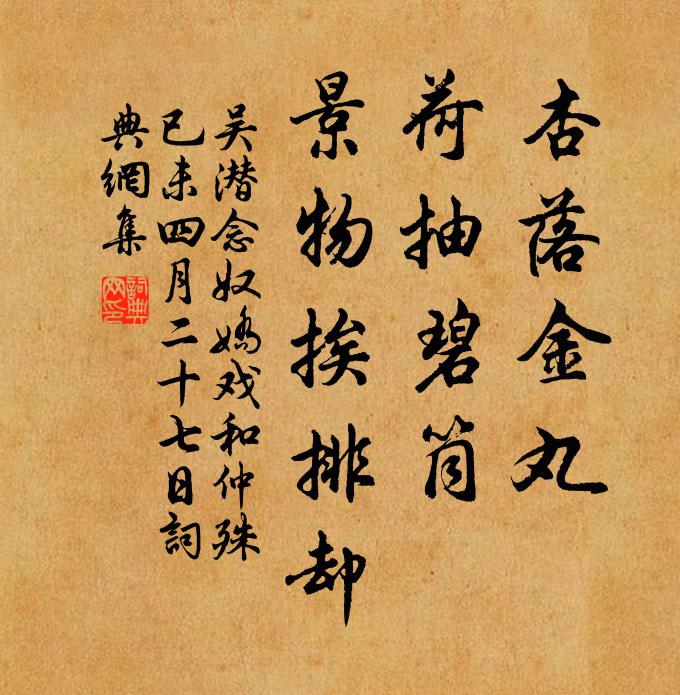 杏落金丸
荷抽碧筒
景物挨排却
吴潜念奴娇戏和仲殊
已未四月二十七日詞
典網集
詞典網印